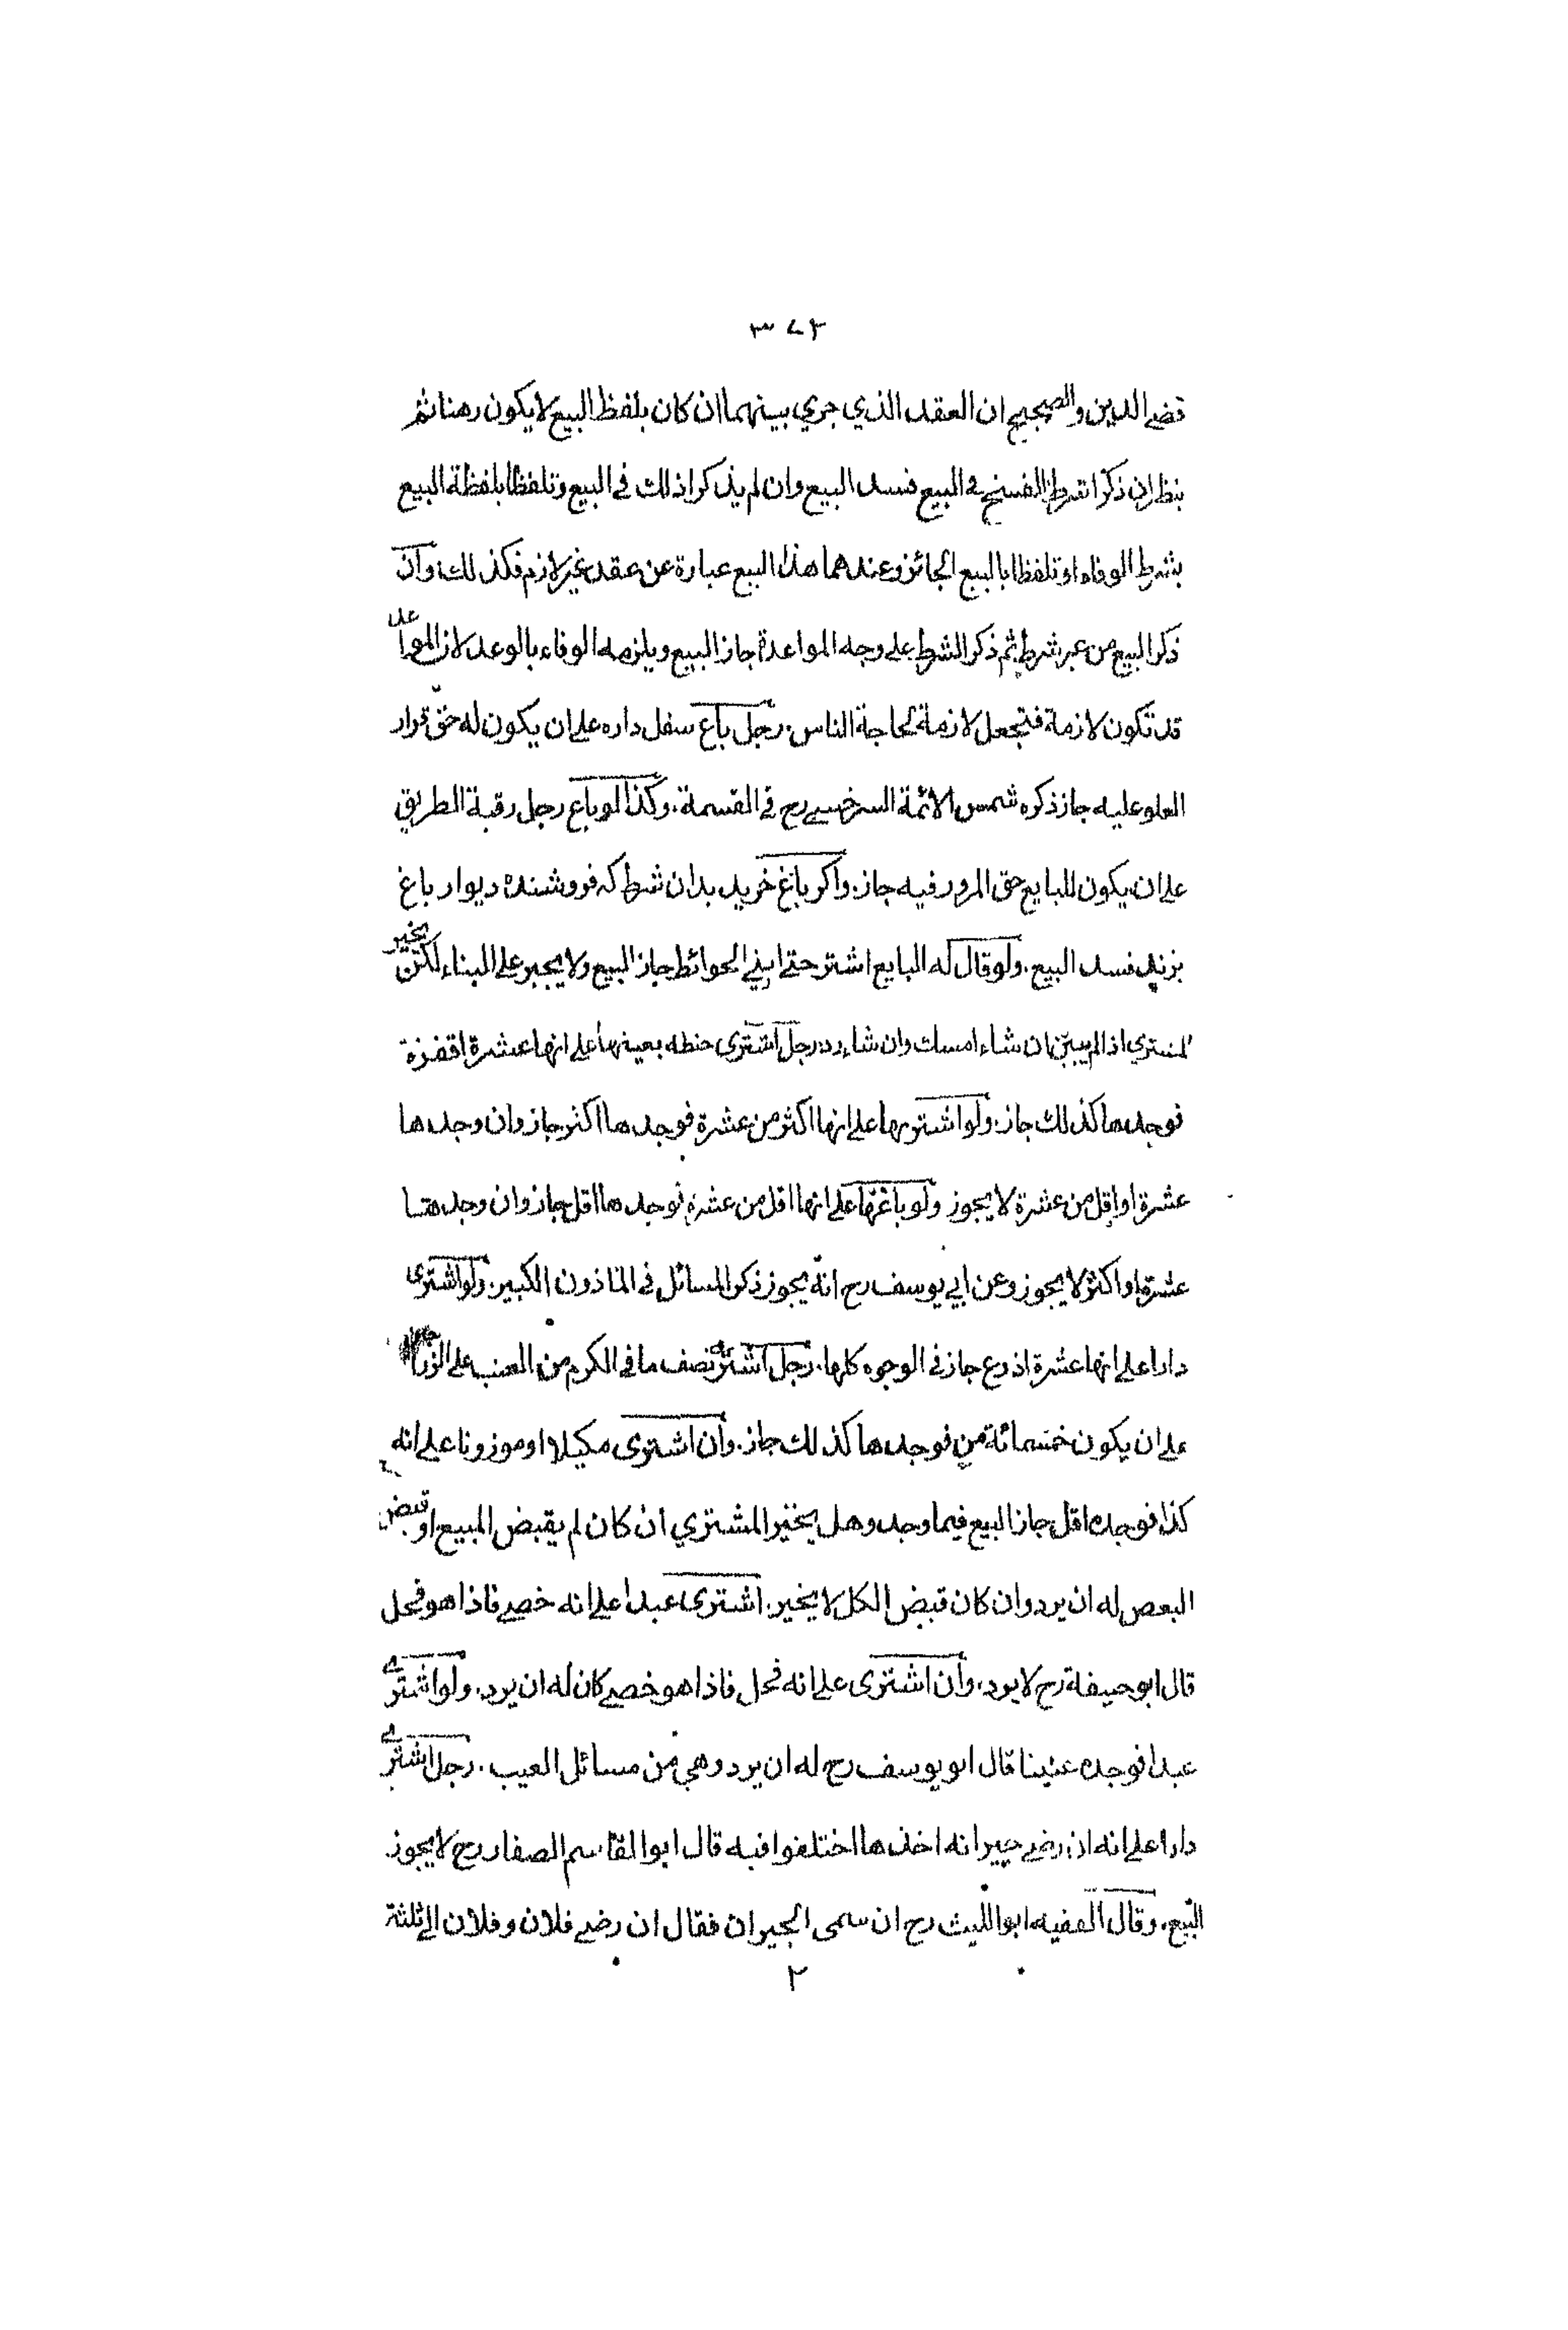 ٣٧٢
قضى الدين والصحيح ان العقد الذي جري بينهما ان كان بلفظ البيع لا يكون رهنا ثم
ينظر ان ذكرا شرط الفسخ في البيع فسد البيع وان لم يذكرا ذلك في البيع وتلفظا بلفظة البيع
بشرط الوفاء او تلفظا بالبيع الجائز وعندهما هذا البيع عبارة عن عقد غير لازم فكذلك، وان
ذكر البيع من غير شرط ثم ذكر الشرط على وجه المواعدة جاز البيع ويلزمه الوفاء بالوعد لان المواعد
قد تكون لازمة فتجعل لازمة لحاجة الناس. رجل باع سفل داره على ان يكون له حق قرار
العلو عليه جاز ذكره شمس الائمة السرخسي رح في القسمة. وكذا لو باع رجل رقبة الطريق
على ان يكون للبايع حق المرور فيه جاز. واكر باغ خريد بدان شرط كه فروشنده ديوار باغ
بزند فسد البيع. ولو قال له البايع اشتر حتى ابني الحوائط جاز البيع ولا يجبر على البناء لكن يخير
المشتري اذا لم يبن ان شاء امسك وان شاء رد. رجل اشترى حنطه بعينها على انها عشرة اقفزة
فوجدها كذلك جاز. ولو اشتريها على انها اكثر من عشرة فوجدها اكثر جاز وان وجدها
عشرة او اقل من عشرة لا يجوز ولو باعها على انها اقل من عشرة فوجدها اقل جاز وان وجدها
عشرة او اكثر لا يجوز وعن ابي يوسف رح انه يجوز ذكر المسائل في الماذون الكبير. ولو اشترى
دارا على انها عشرة اذرع جاز في الوجوه كلها. رجل اشترى نصف ما في الكرم من العنب على الزراجين
على ان يكون خمسمائة من فوجدها كذلك جاز. وان اشترى مكيلا او موزونا على انه
كذا فوجده اقل جاز البيع فيما وجد وهل يخير المشتري ان كان لم يقبض المبيع او قبض
البعض له ان يرد وان كان قبض الكل لا يخير. اشترى عبدا على انه خصي فاذا هو فحل
قال ابو حنيفة رح لا يرد. وان اشترى على انه فحل فاذا هو خصي كان له ان يرد. ولو اشترى
عبدا فوجده عنينا قال ابو يوسف رح له ان يرد وهي من مسائل العيب. رجل اشترى
دارا على انه ان رضي جيرانه اخذها اختلفوا فيه قال ابو القاسم الصفار رح لا يجوز
البيع. وقال الفقيه ابو الليث رح ان سمى الجيران فقال ان رضي فلان وفلان الى ثلثة
٢